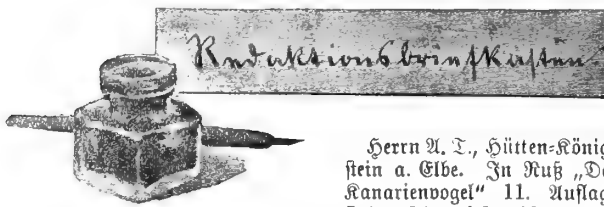 Redaktionsbriefkasten.
Herrn A. T., Hütten-König
stein a. Elbe. In Ruß „De
Kanarienvogel“ 11. Auflag